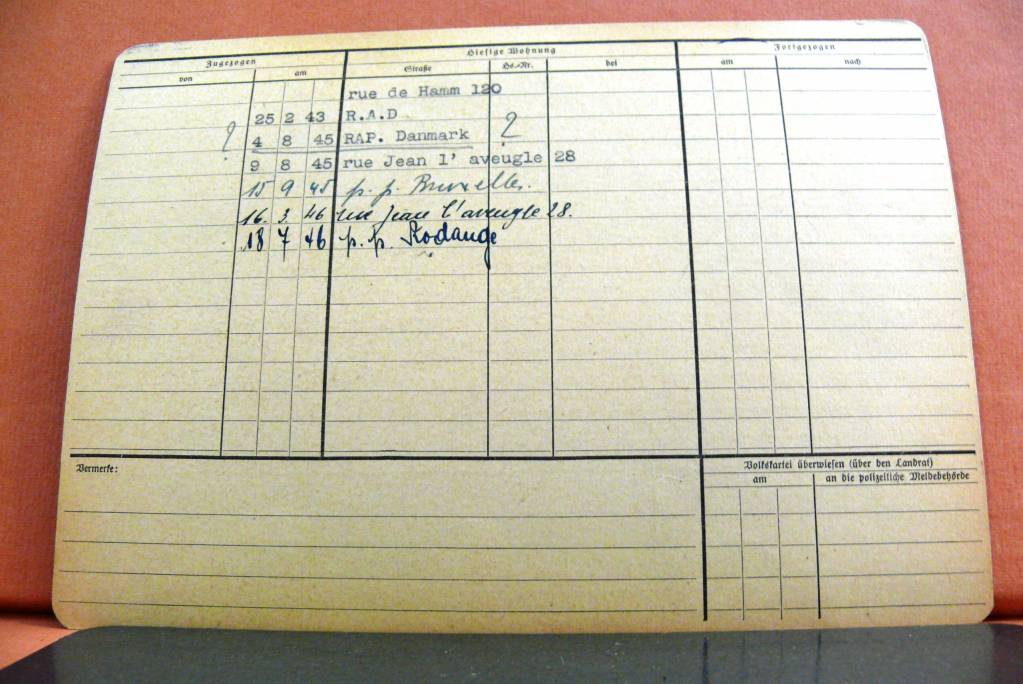 Zugezogen Hiesige Wohnung Fortgezogen
von am Straße Hs.-Nr. bei am nach
rue de Hamm 120
25 2 43 R.A.D
? 4 8 45 RAP. Danmark ?
9 8 45 rue Jean l' aveugle 28
15 9 45 p. p. Bruxelles.
16. 3 46 rue Jean l'aveugle 28.
18 7 46 p. p. Rodange
Vermerke: Volkskartei überwiesen (über den Landrat)
am an die polizeiliche Meldebehörde